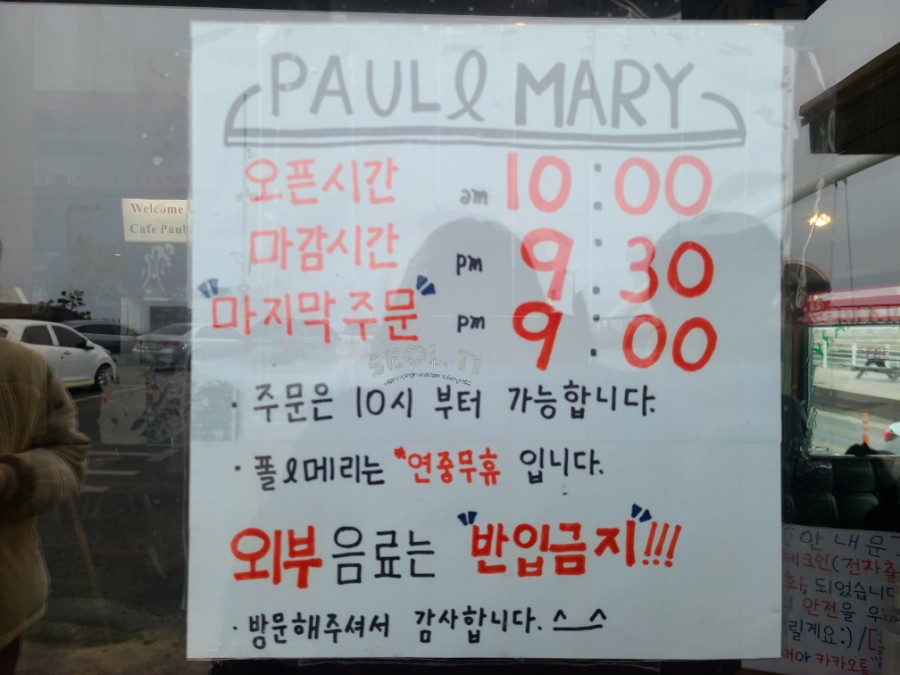 PAUL & MARY
오픈시간 am 10:00
마감시간 pm 9:30
"마지막 주문" pm 9:00
· 주문은 10시 부터 가능합니다.
· 폴&메리는 *연중무휴 입니다.
외부 음료는 "반입금지"!!!
· 방문해주셔서 감사합니다. ^_^
Welcome
Cafe
안내문
(전자출
되었습니다
안전을
릴게요:)/
카카오톡